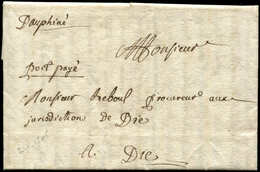 Dauphiné
Monsieur
Port payé
Monsieur Reboul procureur aux
jurisdiction de Die
A Die